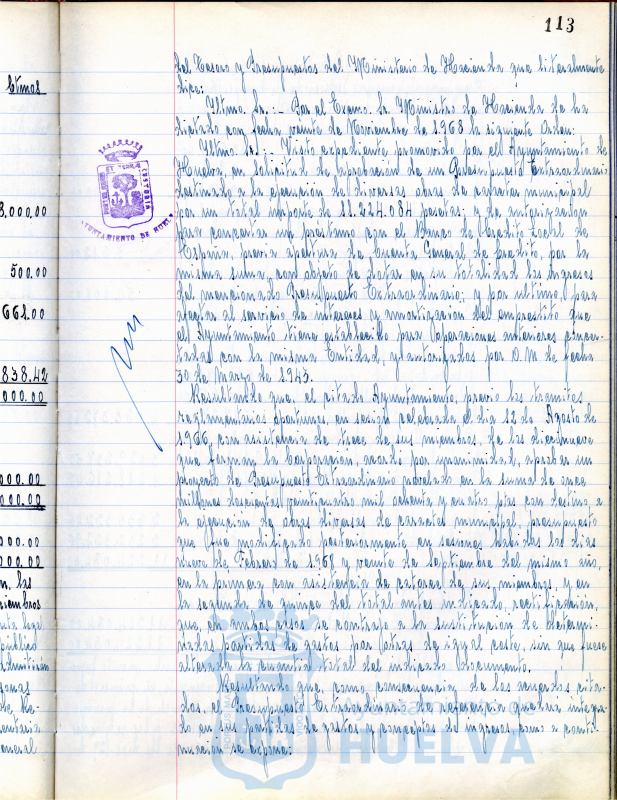 113
del Tesoro y Presupuestos del Ministerio de Hacienda que literalmente
dice:
Iltmo. Sr.:- Por el Excmo. Sr. Ministro de Hacienda se ha
dictado con fecha veinte de Noviembre de 1.968 la siguiente Orden:
Iltmo. Sr.:- Visto expediente promovido por el Ayuntamiento de
Huelva, en solicitud de aprobación de un Presupuesto Extraordinario
destinado a la ejecución de diversas obras de caracter municipal
por un total importe de 11.224.084 pesetas; y de autorización
para concertar un prestamo con el Banco de Credito Local de
España, previa apertura de Cuenta General de Credito, por la
misma suma, con objeto de dotar en su totalidad los ingresos
del mencionado Presupuesto Extraordinario; y por ultimo, para
afectar al servicio de intereses y amortización del emprestito que
el Ayuntamiento tiene establecido para Operaciones anteriores concer-
tadas con la misma Entidad, y autorizadas por O.M. de fecha
30 de Marzo de 1943.
Resultando que, el citado Ayuntamiento, previo los tramites
reglamentarios oportunos, en sesión celebrada el dia 12 de Agosto de
1.966, con asistencia de trece de sus miembros, de los diecinueve
que forman la Corporación, acordó por unanimidad, aprobar un
proyecto de Presupuesto Extraordinario nivelado en la suma de once
millones doscientas veinticuatro mil ochenta y cuatro ptas con destino a
la ejecución de obras diversas de caracter municipal, presupuesto
que fue modificado posteriormente en sesiones habidas los dias
nueve de Febrero de 1968 y veinte de Septiembre del mismo año,
en la primera con asistencia de catorce de sus miembros, y en
la segunda de quince del total antes indicado, rectificación,
que en ambos casos se contrajo a la sustitución de determi-
nadas partidas de gastos por otras de igual coste, sin que fuese
alterada la cuantia total del indicado documento.
Resultando que, como consecuencia de los acuerdos cita-
dos, el Presupuesto Extraordinario de referencia quedara integra-
do en sus partidas de gastos y conceptos de ingresos como a conti-
nuación se expone:
AYUNTAMIENTO DE HUELVA
500.00
838.42
000.00
000.00
000.00
000.00
n, las
miembros
HUELVA